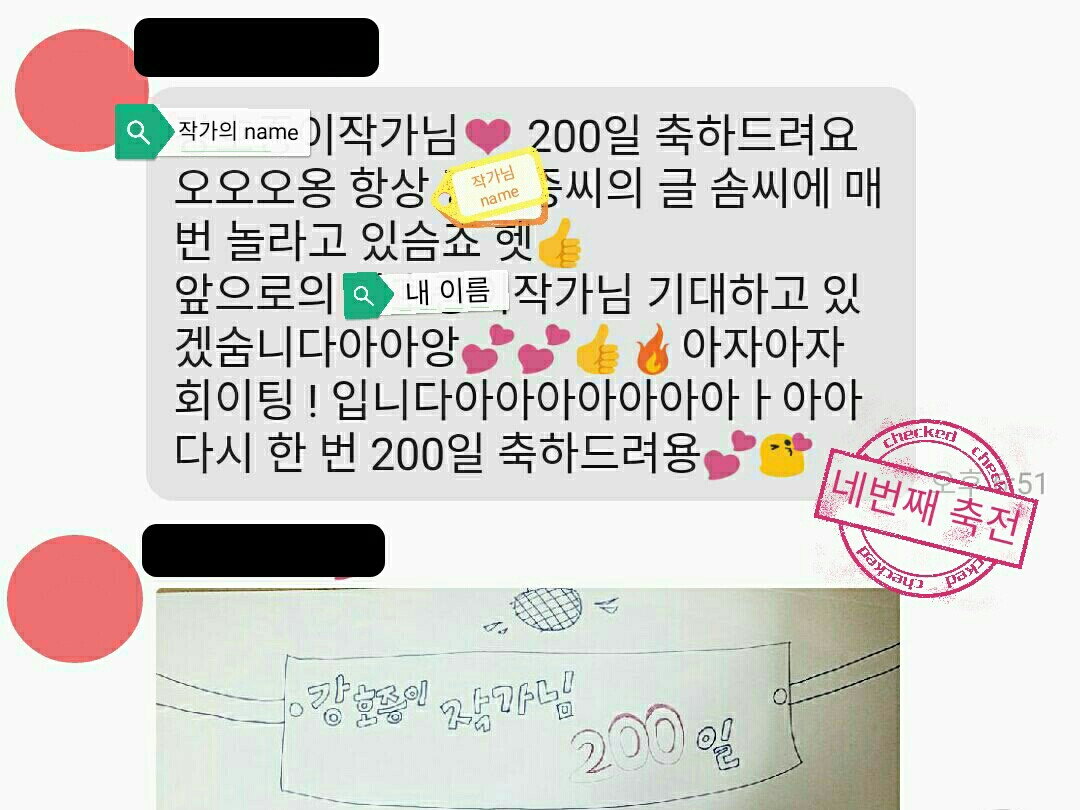 작가의 name
이작가님❤ 200일 축하드려요
오오오옹 항상
작가님
name
씨의 글 솜씨에 매
번 놀라고 있슴죠 헷👍
앞으로의
내 이름
작가님 기대하고 있
겠숨니다아아앙💕💕👍🔥 아자아자
회이팅 ! 입니다아아아아아아아ㅏ아아
다시 한 번 200일 축하드려용💕😘
51
checked
checked
네번째 축전
checked
checked
강호종이 작가님
200일